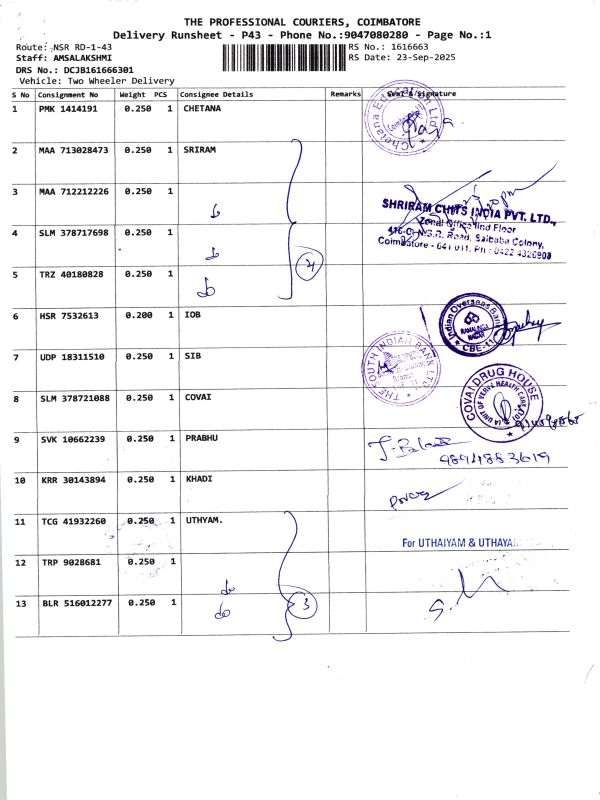 THE PROFESSIONAL COURIERS, COIMBATORE
Delivery Runsheet - P43 - Phone No.:9047080280 - Page No.:1
Route: NSR RD-1-43 RS No.: 1616663
Staff: AMSALAKSHMI RS Date: 23-Sep-2025
DRS No.: DCJB161666301
Vehicle: Two Wheeler Delivery
S No Consignment No Weight PCS Consignee Details Remarks Seal & Signature
1 PMK 1414191 0.250 1 CHETANA
2 MAA 713028473 0.250 1 SRIRAM
3 MAA 712212226 0.250 1 do
SHRIRAM CHITS INDIA PVT. LTD.,
Zonal Office IInd Floor
416-C, N.S.R. Road, Saibaba Colony,
Coimbatore - 641 011. Ph : 0422 4326903
4 SLM 378717698 0.250 1 do
4
5 TRZ 40180828 0.250 1 do
6 HSR 7532613 0.200 1 IOB
Indian Overseas Bank
RAMALINGA NAGAR
CBE-11
7 UDP 18311510 0.250 1 SIB
THE SOUTH INDIAN BANK LTD.
8 SLM 378721088 0.250 1 COVAI
COVAI DRUG HOUSE
(A UNIT OF VERVE HEALTH CARE
9 SVK 10662239 0.250 1 PRABHU
9894883619
10 KRR 30143894 0.250 1 KHADI
11 TCG 41932260 0.250 1 UTHYAM.
For UTHAIYAM & UTHAYA
12 TRP 9028681 0.250 1 do
13 BLR 516012277 0.250 1 do
3